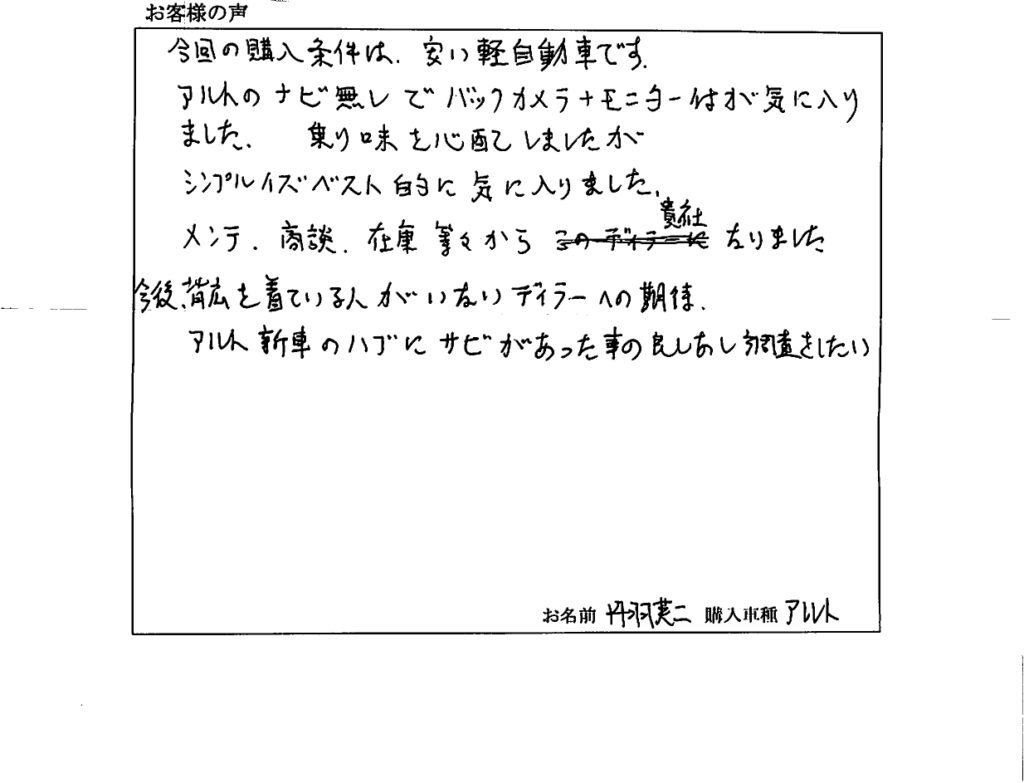 お客様の声
今回の購入条件は、安い軽自動車です。
アルトのナビ無しでバックカメラ+モニター付が気に入り
ました。 乗り味を心配しましたが
シンプルイズベスト的に気に入りました。
貴社
メンテ、商談、在庫等々から このディラーに なりました
今後、背広を着ている人がいないディラーへの期待、
アルト新車のハブにサビがあった事の良しあし調査をしたい
お名前 丹羽英二 購入車種 アルト